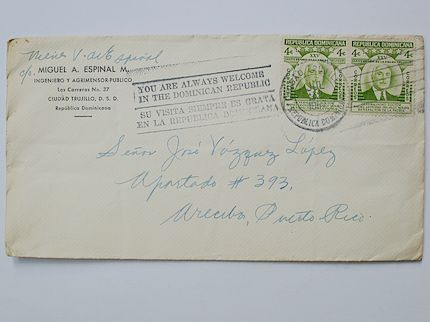 V. de Espinal
c/o MIGUEL A. ESPINAL M.
INGENIERO Y AGRIMENSOR-PUBLICO
Las Carreras No. 37
CIUDAD TRUJILLO, D. S. D.
República Dominicana
YOU ARE ALWAYS WELCOME
IN THE DOMINICAN REPUBLIC
SU VISITA SIEMPRE ES GRATA
EN LA REPUBLICA DOMINICANA
REPUBLICA DOMINICANA
4c 4c
REPUBLICA DOMINICANA
4c 4c
REPUBLICA DOM
Señor José Vázquez López
Apartado # 393,
Arecibo, Puerto Rico.